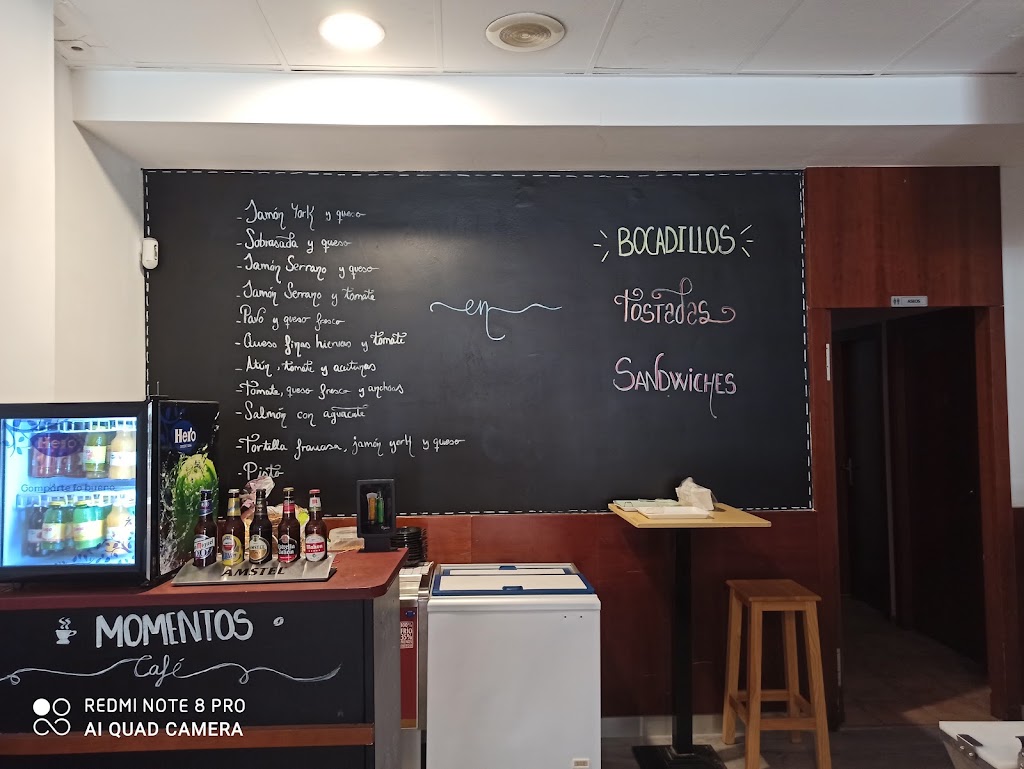 - Jamón York y queso
- Sobrasada y queso
- Jamón Serrano y queso
- Jamón Serrano y tomate
- Pavo y queso fresco
- Queso finas hiervas y tomate
- Atún, tomate y aceitunas
- Tomate, queso fresco y anchoas
- Salmón con aguacate
- Tortilla francesa, jamón york y queso
- Pisto
en
BOCADILLOS
Tostadas
SANDWICHES
ASEOS
Hero
Hero
Comparte lo bueno
AMSTEL
MOMENTOS
Café
REDMI NOTE 8 PRO
AI QUAD CAMERA